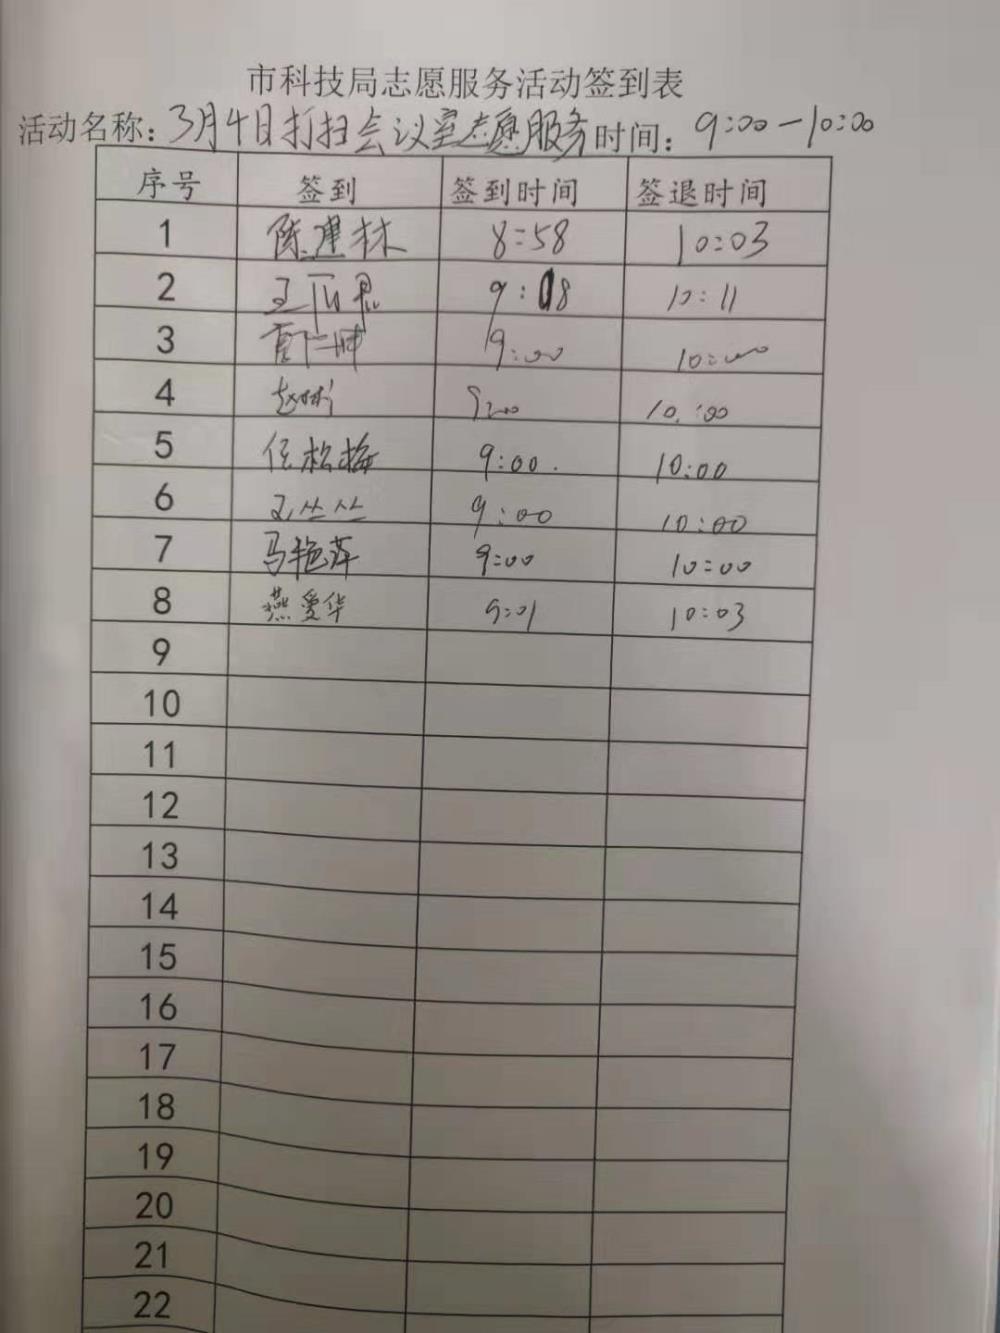 市科技局志愿服务活动签到表
活动名称：3月4日打扫会议室志愿服务 时间：9:00—10:00
序号 签到 签到时间 签退时间
1 陈建林 8:58 10:03
2 9:08 10:11
3 9:00 10:00
4 9:00 10:00
5 任松梅 9:00. 10:00
6 王丛丛 9:00 10:00
7 马艳萍 9:00 10:00
8 燕爱华 9:01 10:03
9
10
11
12
13
14
15
16
17
18
19
20
21
22